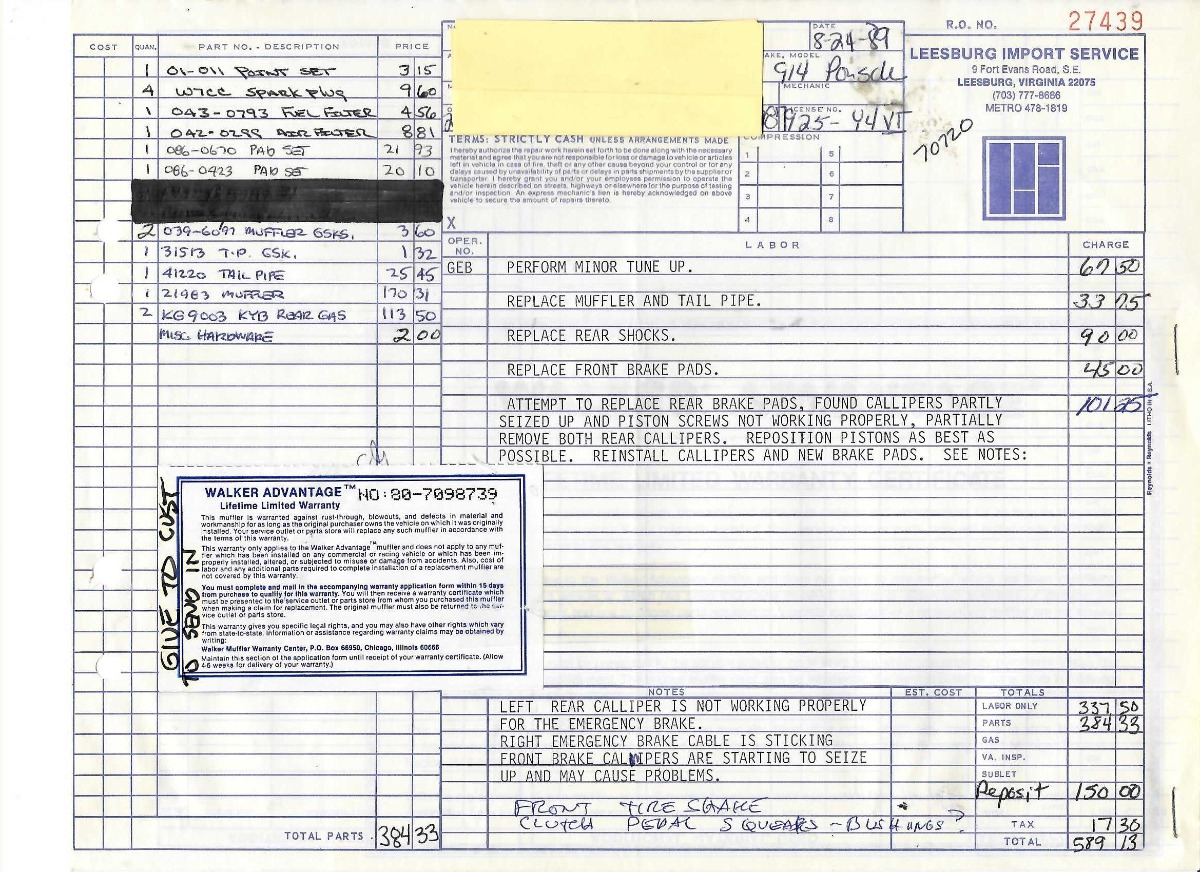 R.O. NO. 27439
DATE
8-24-89
LEESBURG IMPORT SERVICE
9 Fort Evans Road, S.E.
LEESBURG, VIRGINIA 22075
(703) 777-8686
METRO 478-1819
MODEL
914 Porsche
MECHANIC
LICENSE NO.
925-44 VT
70720
COST QUAN. PART NO. - DESCRIPTION PRICE
1 01-011 POINT SET 3 15
4 W7CC SPARK PLUG 9 60
1 043-0793 FUEL FILTER 4 56
1 042-0299 AIR FILTER 8 81
1 086-0670 PAD SET 21 93
1 086-0423 PAD SET 20 10
2 039-6097 MUFFLER GSKS. 3 60
1 31513 T.P. GSK. 1 32
1 41220 TAIL PIPE 25 45
1 21983 MUFFLER 170 31
2 KG9003 KYB REAR GAS 113 50
MISC. HARDWARE 2 00
TERMS: STRICTLY CASH UNLESS ARRANGEMENTS MADE
I hereby authorize the repair work herein set forth to be done along with the necessary
material and agree that you are not responsible for loss or damage to vehicle or articles
left in vehicle in case of fire, theft or any other cause beyond your control or for any
delays caused by unavailability of parts or delays in parts shipments by the supplier or
transporter. I hereby grant you and/or your employees permission to operate the
vehicle herein described on streets, highways or elsewhere for the purpose of testing
and/or inspection. An express mechanic's lien is hereby acknowledged on above
vehicle to secure the amount of repairs thereto.
X
COMPRESSION
1 5
2 6
3 7
4 8
OPER. NO. LABOR CHARGE
GEB PERFORM MINOR TUNE UP. 67 50
REPLACE MUFFLER AND TAIL PIPE. 33 75
REPLACE REAR SHOCKS. 90 00
REPLACE FRONT BRAKE PADS. 45 00
ATTEMPT TO REPLACE REAR BRAKE PADS, FOUND CALLIPERS PARTLY 101 25
SEIZED UP AND PISTON SCREWS NOT WORKING PROPERLY, PARTIALLY
REMOVE BOTH REAR CALLIPERS. REPOSITION PISTONS AS BEST AS
POSSIBLE. REINSTALL CALLIPERS AND NEW BRAKE PADS. SEE NOTES:
Reynolds + Reynolds LITHO IN U.S.A.
GIVE TO CUST
TO SEND IN
WALKER ADVANTAGE™ NO:80-7098739
Lifetime Limited Warranty
This muffler is warranted against rust-through, blowouts, and defects in material and
workmanship for as long as the original purchaser owns the vehicle on which it was originally
installed. Your service outlet or parts store will replace any such muffler in accordance with
the terms of this warranty.
This warranty only applies to the Walker Advantage™ muffler and does not apply to any muf-
fler which has been installed on any commercial or racing vehicle or which has been im-
properly installed, altered, or subjected to misuse or damage from accidents. Also, cost of
labor and any additional parts required to complete installation of a replacement muffler are
not covered by this warranty.
You must complete and mail in the accompanying warranty application form within 15 days
from purchase to qualify for this warranty. You will then receive a warranty certificate which
must be presented to the service outlet or parts store from whom you purchased this muffler
when making a claim for replacement. The original muffler must also be returned to the ser-
vice outlet or parts store.
This warranty gives you specific legal rights, and you may also have other rights which vary
from state-to-state. Information or assistance regarding warranty claims may be obtained by
writing:
Walker Muffler Warranty Center, P.O. Box 66950, Chicago, Illinois 60666
Maintain this section of the application form until receipt of your warranty certificate. (Allow
4-6 weeks for delivery of your warranty.)
NOTES EST. COST TOTALS
LEFT REAR CALLIPER IS NOT WORKING PROPERLY
FOR THE EMERGENCY BRAKE.
RIGHT EMERGENCY BRAKE CABLE IS STICKING
FRONT BRAKE CALLIPERS ARE STARTING TO SEIZE
UP AND MAY CAUSE PROBLEMS.
FRONT TIRE SHAKE
CLUTCH PEDAL SQUEAKS - BUSHINGS?
LABOR ONLY 337 50
PARTS 384 33
GAS
VA. INSP.
SUBLET
Deposit 150 00
TAX 17 30
TOTAL 589 13
TOTAL PARTS 384 33